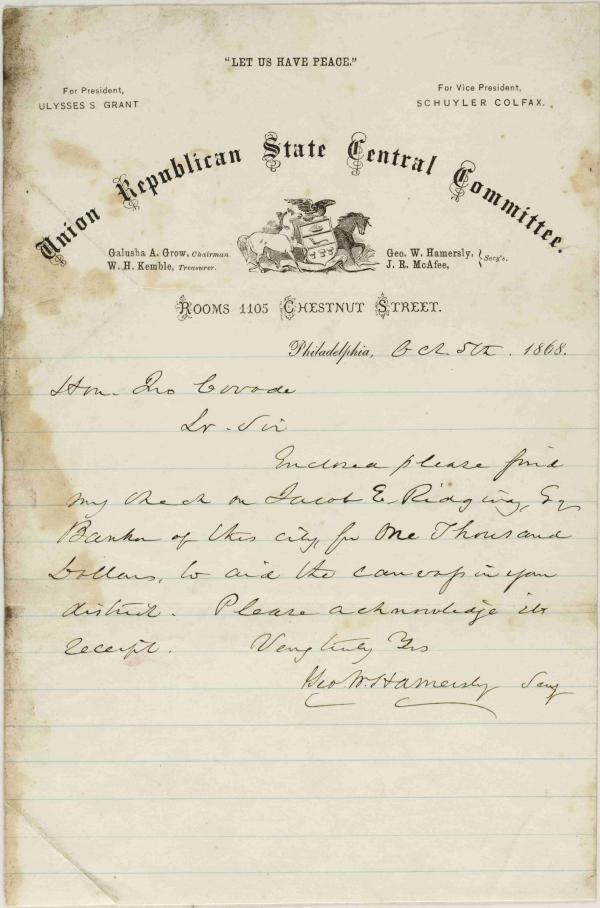 "LET US HAVE PEACE."
For President,
ULYSSES S GRANT
For Vice President,
SCHUYLER COLFAX.
Union Republican State Central Committee.
Galusha A. Grow, Chairman
W. H. Kemble, Treasurer.
Geo. W. Hamersly,
J. R. McAfee,
Secy's.
ROOMS 1105 CHESTNUT STREET.
Philadelphia, Oct. 5th. 1868.
Hon. Jno Covode
Dr. Sir
Enclosed please find
my check on Jacob E. Ridgway, Esq
Banker of this city, for One Thousand
Dollars, to aid the canvass in your
district. Please acknowledge its
receipt. Very truly Yrs
Geo W. Hamersly Secy